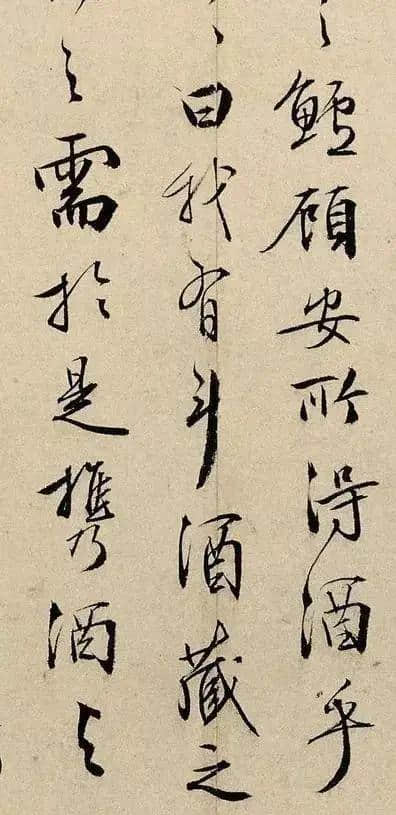 鱸顧安所得酒乎
曰我有斗酒藏之
之需於是携酒与